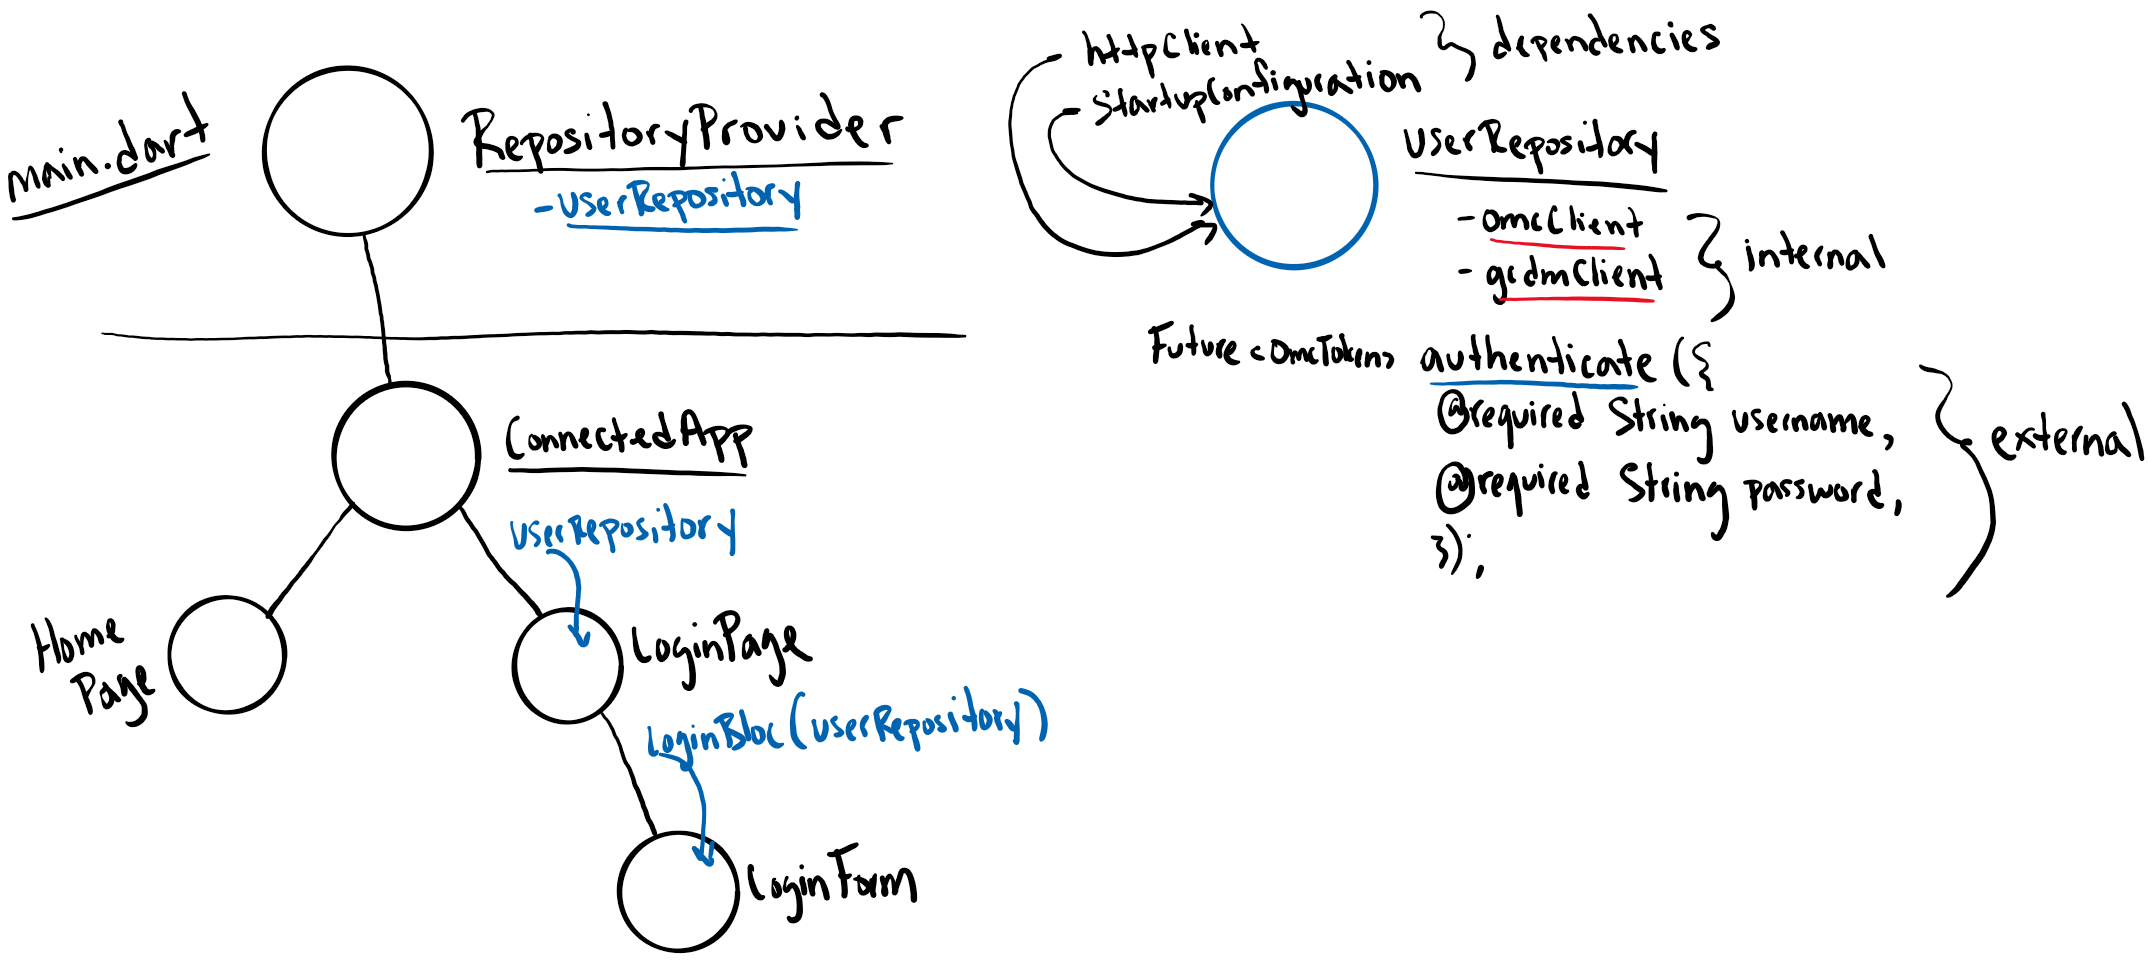 main.dart
RepositoryProvider
-userRepository
ConnectedApp
userRepository
Home
Page
LoginPage
LoginBloc(userRepository)
LoginForm
- httpClient
- StartupConfiguration
} dependencies
userRepository
- omcClient
- gcdmClient
} internal
Future<OmcToken> authenticate ({
@required String username,
@required String password,
});
} external